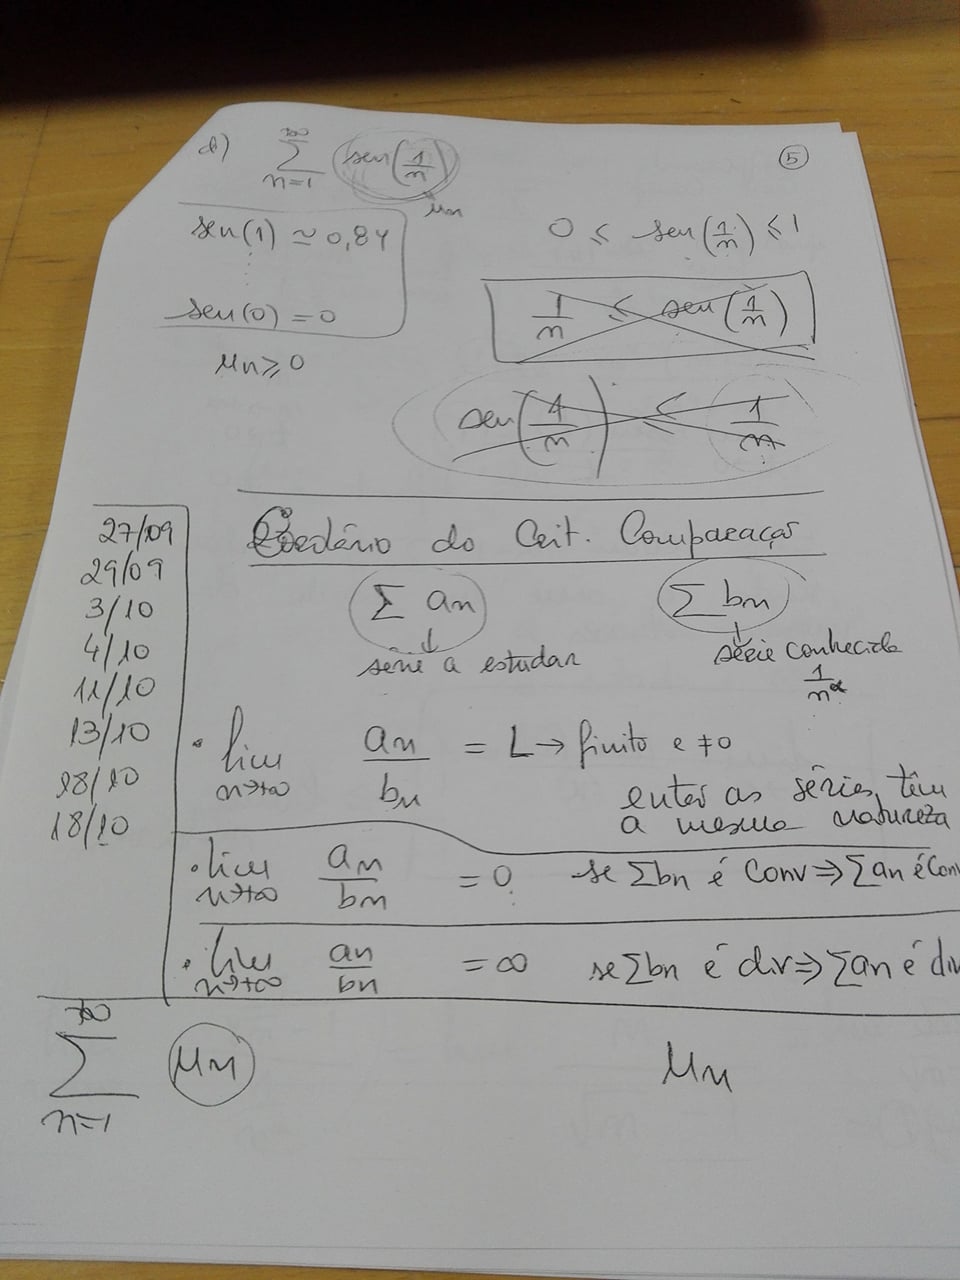 d) ∞ Σ n=1 sen(1/n) un
5
sen(1) ≃ 0,84
0 ≤ sen(1/n) ≤ 1
sen(0) = 0
1/n ≤ sen(1/n)
un ≥ 0
sen(1/n) ≤ 1/n
27/09
29/09
3/10
4/10
11/10
13/10
18/10
18/10
do Crit. Comparação
Σ an
Σ bn
série a estudar
série conhecida
1/n^α
• lim n→+∞ an/bn = L → finito e ≠0
então as séries têm
a mesma natureza
• lim n→+∞ an/bn = 0 se Σbn é Conv ⇒ Σan é Conv
• lim n→+∞ an/bn = ∞ se Σbn é div ⇒ Σan é div
+∞ Σ n=1 un
un